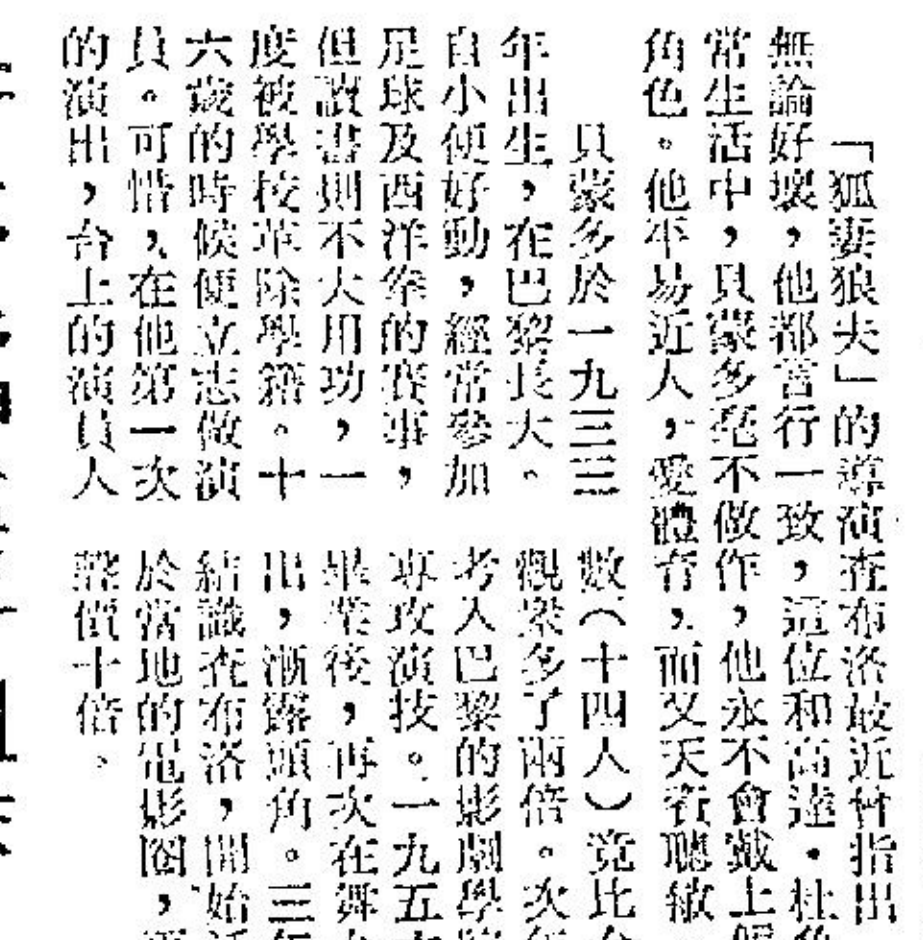 「狐妻狼夫」的導演查布洛最近曾指出
無論好壞,他都言行一致,這位和高達·杜
常生活中,貝蒙多毫不做作,他永不會戴上
角色。他平易近人,愛體育,而又天資聰敏
貝蒙多於一九三三
年出生,在巴黎長大。
自小便好動,經常參加
足球及西洋拳的賽事,
但讀書則不大用功,一
度被學校革除學籍。十
六歲的時候便立志做演
員。可惜,在他第一次
的演出,台上的演員人
數(十四人)竟比
觀眾多了兩倍。次
考入巴黎的影劇學
專攻演技。一九五
畢業後,再次在舞
出,漸露頭角。三
結識查布洛,開始
於當地的電影圈,
聲價十倍。